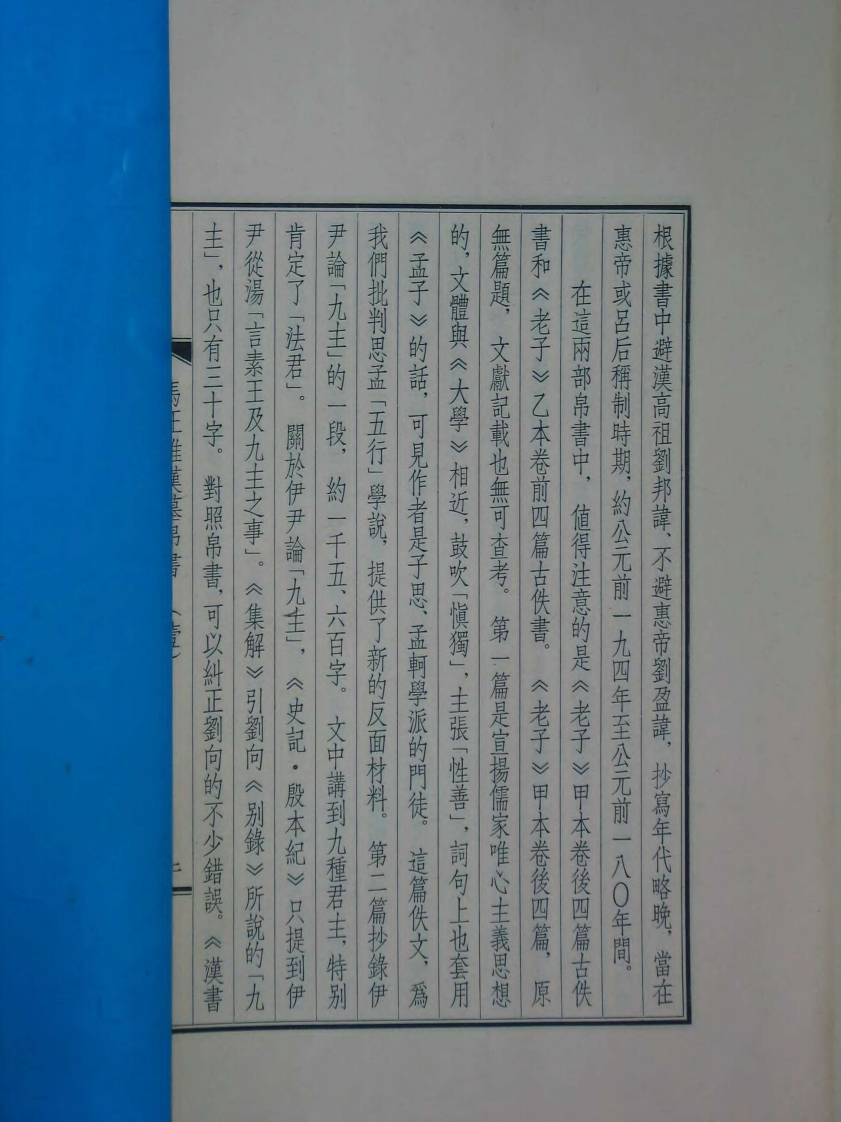 根據書中避漢高祖劉邦諱、不避惠帝劉盈諱，抄寫年代略晚，當在
惠帝或呂后稱制時期，約公元前一九四年至公元前一八〇年間。
在這兩部帛書中，值得注意的是《老子》甲本卷後四篇古佚
書和《老子》乙本卷前四篇古佚書。《老子》甲本卷後四篇，原
無篇題，文獻記載也無可查考。第一篇是宣揚儒家唯心主義思想
的，文體與《大學》相近，鼓吹「慎獨」，主張「性善」，詞句上也套用
《孟子》的話，可見作者是子思、孟軻學派的門徒。這篇佚文，爲
我們批判思孟「五行」學說，提供了新的反面材料。第二篇抄錄伊
尹論「九主」的一段，約一千五、六百字。文中講到九種君主，特別
肯定了「法君」。關於伊尹論「九主」，《史記·殷本紀》只提到伊
尹從湯「言素王及九主之事」。《集解》引劉向《别錄》所說的「九
主」，也只有三十字。對照帛書，可以糾正劉向的不少錯誤。《漢書
馬王堆漢墓帛書（壹）